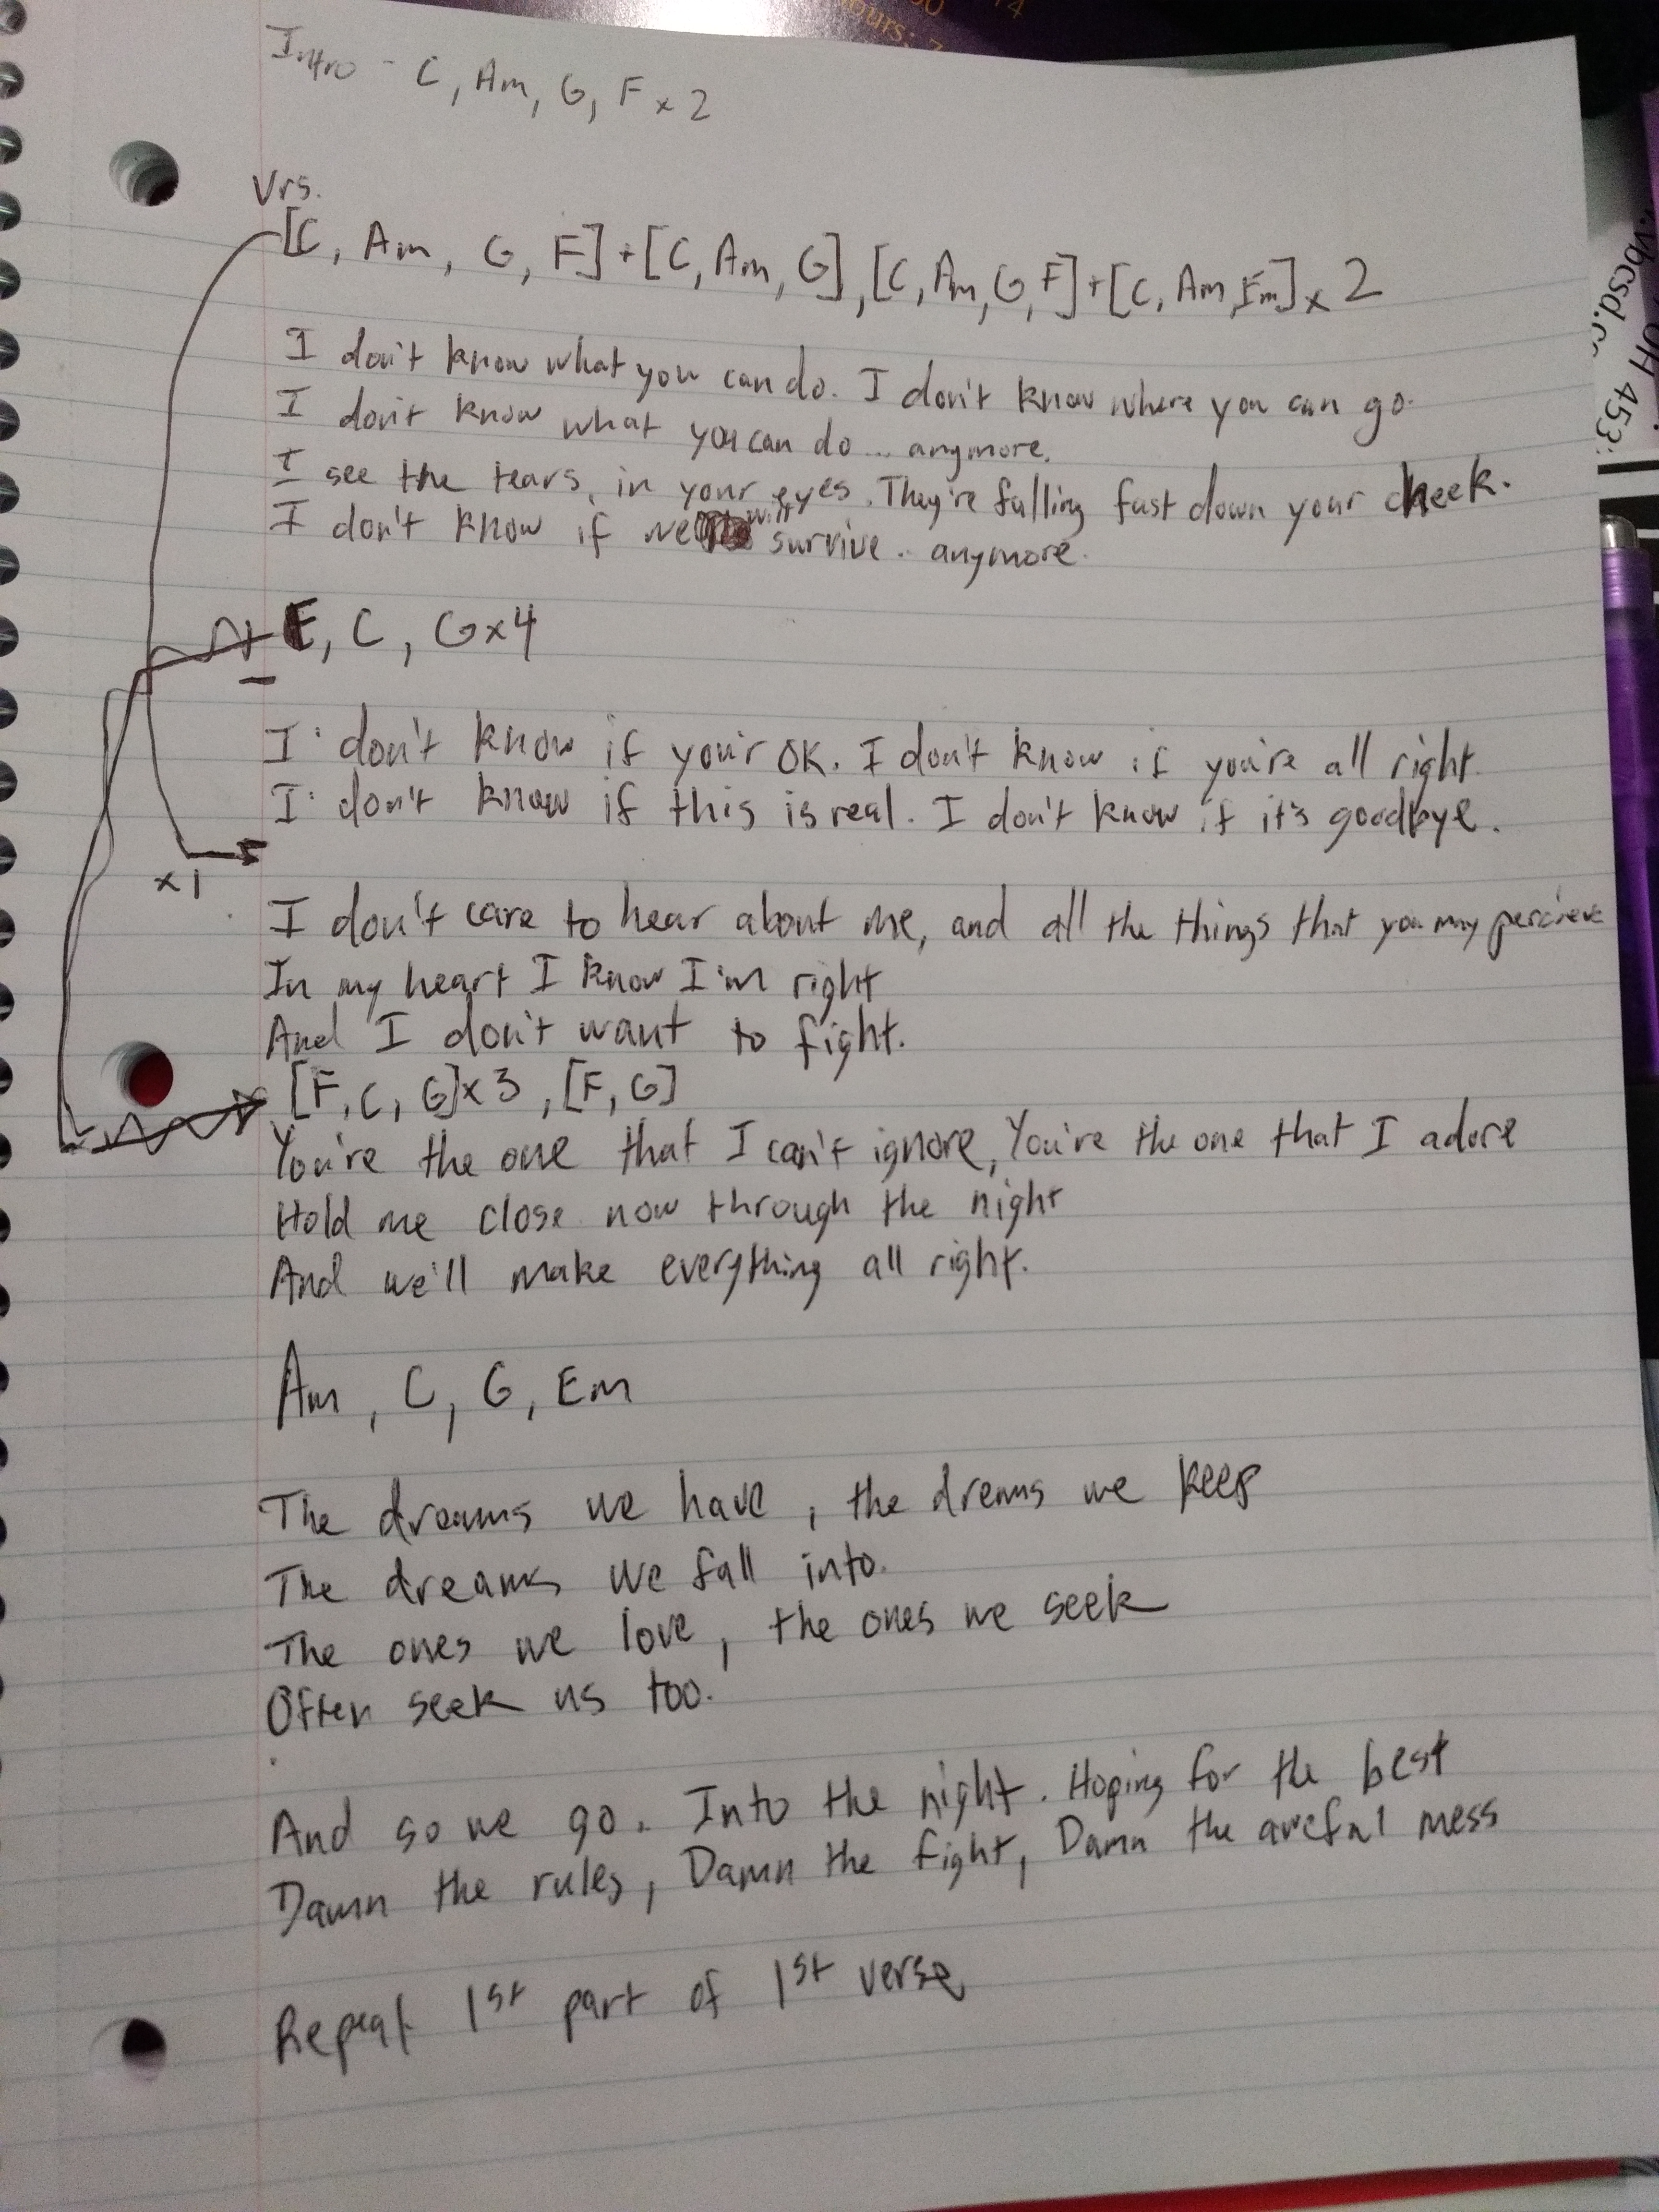 ours: 7
Intro - C, Am, G, F x 2
Vrs.
[C, Am, G, F] + [C, Am, G], [C, Am, G, F] + [C, Am, Em] x 2
I don't know what you can do. I don't know where you can go.
I don't know what you can do... anymore.
I see the tears, in your eyes. They're falling fast down your cheek.
I don't know if we will survive.. anymore.
F, C, G x4
I don't know if your OK. I don't know if you're all right.
I don't know if this is real. I don't know if it's goodbye.
x1
I don't care to hear about me, and all the things that you may percieve
In my heart I know I'm right
And I don't want to fight.
[F, C, G] x 3, [F, G]
You're the one that I can't ignore, You're the one that I adore
Hold me close now through the night
And we'll make everything all right.
Am, C, G, Em
The dreams we have, the dreams we keep
The dreams we fall into.
The ones we love, the ones we seek
Often seek us too.
And so we go. Into the night. Hoping for the best
Damn the rules, Damn the fight, Damn the awefal mess
Repeat 1st part of 1st verse